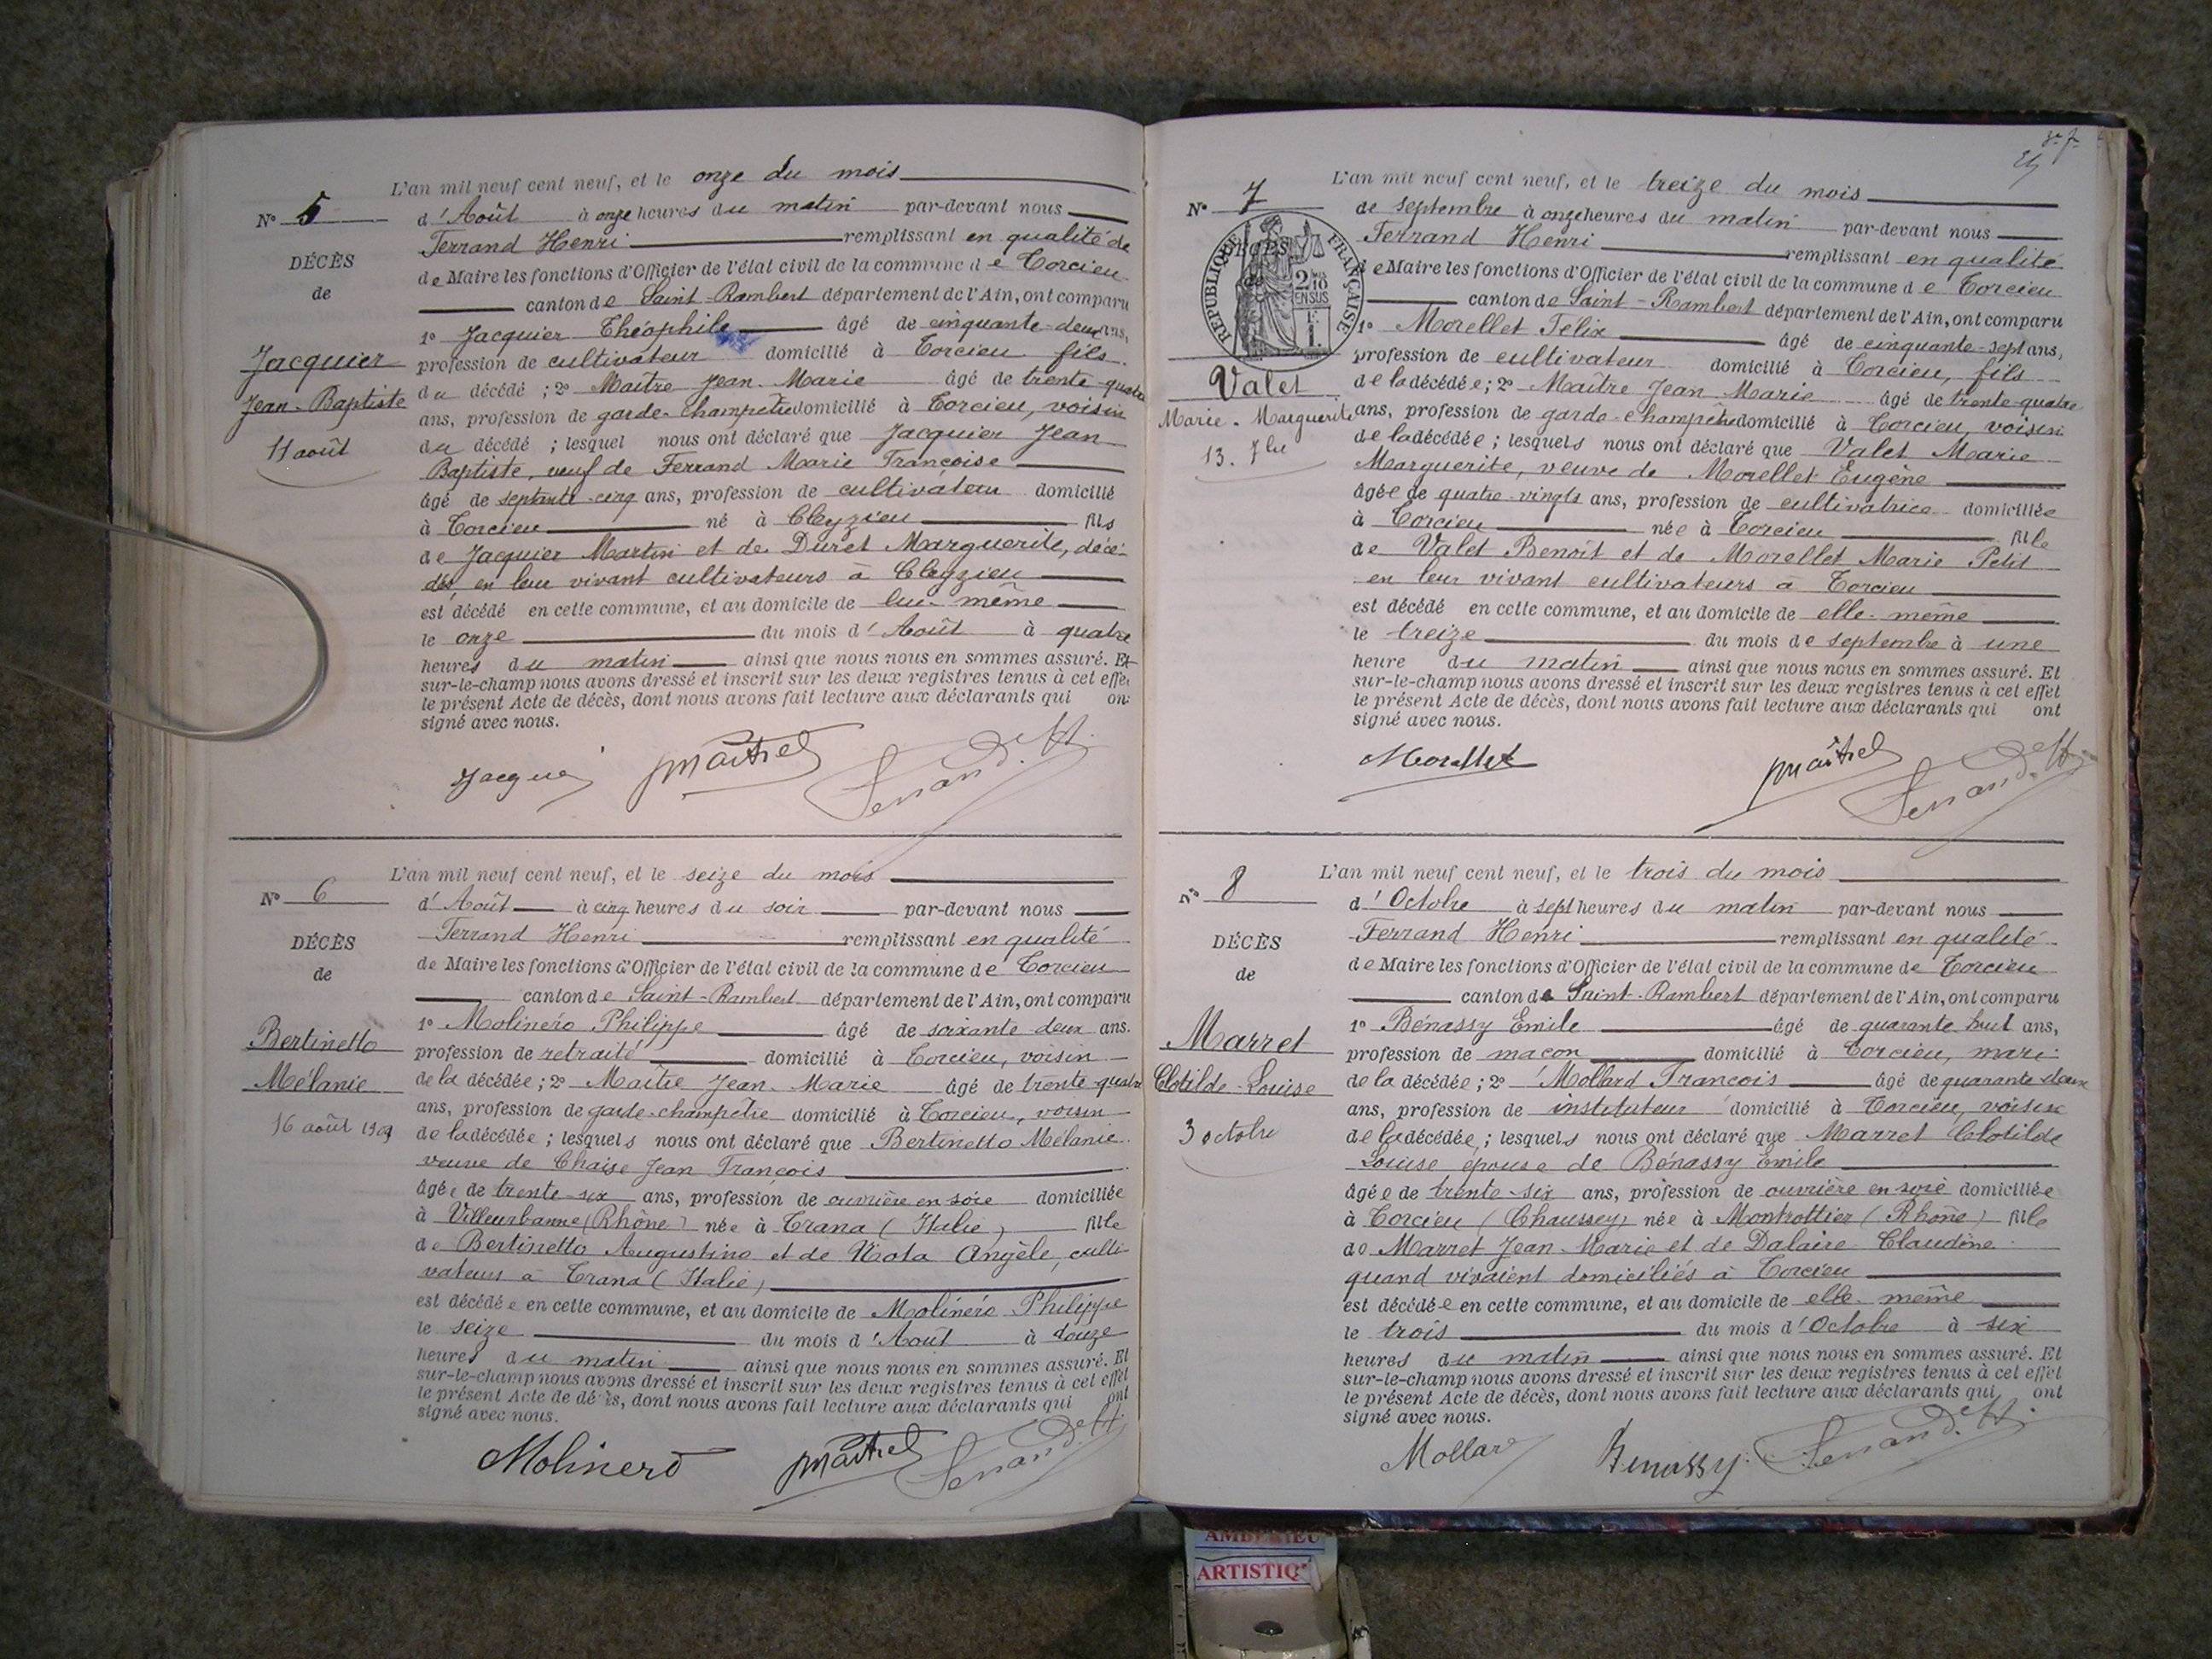 L'an mil neuf cent neuf, et le onze du mois
N° 5
d'Août à onze heures du matin par-devant nous
Ferrand Henri remplissant en qualité de
DÉCÈS
de Maire les fonctions d'Officier de l'état civil de la commune de Torcieu
de
canton de Saint-Rambert département de l'Ain, ont comparu
1° Jacquier Théophile âgé de cinquante-deux ans,
Jacquier
profession de cultivateur domicilié à Torcieu fils
Jean-Baptiste
du décédé ; 2° Maître Jean-Marie âgé de trente-quatre
ans, profession de garde-champêtre domicilié à Torcieu, voisin
11 août
du décédé ; lesquel nous ont déclaré que Jacquier Jean
Baptiste, veuf de Ferrand Marie Françoise
âgé de septante-cinq ans, profession de cultivateur domicilié
à Torcieu né à Cleyzieu fils
de Jacquier Martin et de Duret Marguerite, décé-
dés, en leur vivant cultivateurs à Cleyzieu
est décédé en cette commune, et au domicile de lui-même
le onze du mois d'Août à quatre
heures du matin ainsi que nous nous en sommes assuré. Et
sur-le-champ nous avons dressé et inscrit sur les deux registres tenus à cet effet
le présent Acte de décès, dont nous avons fait lecture aux déclarants qui ont
signé avec nous.
Jacquier Maître Ferrand H.
L'an mil neuf cent neuf, et le seize du mois
N° 6
d'Août à cinq heures du soir par-devant nous
Ferrand Henri remplissant en qualité
DÉCÈS
de Maire les fonctions d'Officier de l'état civil de la commune de Torcieu
de
canton de Saint-Rambert département de l'Ain, ont comparu
1° Molinéro Philippe âgé de soixante deux ans.
Bertinetto
profession de retraité domicilié à Torcieu, voisin
Mélanie
de la décédée ; 2° Maître Jean-Marie âgé de trente-quatre
ans, profession de garde-champêtre domicilié à Torcieu, voisin
16 août 1909
de la décédée ; lesquels nous ont déclaré que Bertinetto Mélanie
veuve de Chaise Jean François
âgée de trente-six ans, profession de ouvrière en soie domiciliée
à Villeurbanne (Rhône) née à Trana (Italie) fille
de Bertinetto Augustino et de Nota Angèle, culti
vateurs à Trana (Italie)
est décédée en cette commune, et au domicile de Molinéro Philippe
le seize du mois d'Août à douze
heures du matin ainsi que nous nous en sommes assuré. Et
sur-le-champ nous avons dressé et inscrit sur les deux registres tenus à cet effet
le présent Acte de décès, dont nous avons fait lecture aux déclarants qui ont
signé avec nous.
Molinero Maître Ferrand H.
L'an mil neuf cent neuf, et le treize du mois
N° 7
de septembre à onze heures du matin par-devant nous
Ferrand Henri remplissant en qualité
RÉPUBLIQUE FRANÇAISE
2/10 EN SUS
F. 1.
de Maire les fonctions d'Officier de l'état civil de la commune de Torcieu
canton de Saint-Rambert département de l'Ain, ont comparu
1° Morellet Félix âgé de cinquante-sept ans,
profession de cultivateur domicilié à Torcieu, fils
Valet
de la décédée ; 2° Maître Jean-Marie âgé de trente-quatre
Marie-Marguerite
ans, profession de garde-champêtre domicilié à Torcieu, voisin
13. 7bre
de la décédée ; lesquels nous ont déclaré que Valet Marie
Marguerite, veuve de Morellet Eugène
âgée de quatre-vingts ans, profession de cultivatrice domiciliée
à Torcieu née à Torcieu fille
de Valet Benoît et de Morellet Marie Petit
en leur vivant cultivateurs à Torcieu
est décédé en cette commune, et au domicile de elle-même
le treize du mois de septembre à une
heure du matin ainsi que nous nous en sommes assuré. Et
sur-le-champ nous avons dressé et inscrit sur les deux registres tenus à cet effet
le présent Acte de décès, dont nous avons fait lecture aux déclarants qui ont
signé avec nous.
Morellet Maître Ferrand H.
L'an mil neuf cent neuf, et le trois du mois
N° 8
d'Octobre à sept heures du matin par-devant nous
Ferrand Henri remplissant en qualité
DÉCÈS
de Maire les fonctions d'Officier de l'état civil de la commune de Torcieu
de
canton de Saint-Rambert département de l'Ain, ont comparu
1° Bénassy Emile âgé de quarante huit ans,
Marret
profession de maçon domicilié à Torcieu, mari
Clotilde-Louise
de la décédée ; 2° Mollard François âgé de quarante-deux
ans, profession de instituteur domicilié à Torcieu, voisin
3 octobre
de la décédée ; lesquels nous ont déclaré que Marret Clotilde
Louise épouse de Bénassy Emile
âgée de trente-six ans, profession de ouvrière en soie domiciliée
à Torcieu (Chaussey) née à Montrottier (Rhône) fille
de Marret Jean-Marie et de Dalaire Claudine
quand vivaient domiciliés à Torcieu
est décédée en cette commune, et au domicile de elle-même
le trois du mois d'Octobre à six
heures du matin ainsi que nous nous en sommes assuré. Et
sur-le-champ nous avons dressé et inscrit sur les deux registres tenus à cet effet
le présent Acte de décès, dont nous avons fait lecture aux déclarants qui ont
signé avec nous.
Mollard Benassy Ferrand H.
AMBERIEU
ARTISTIQ